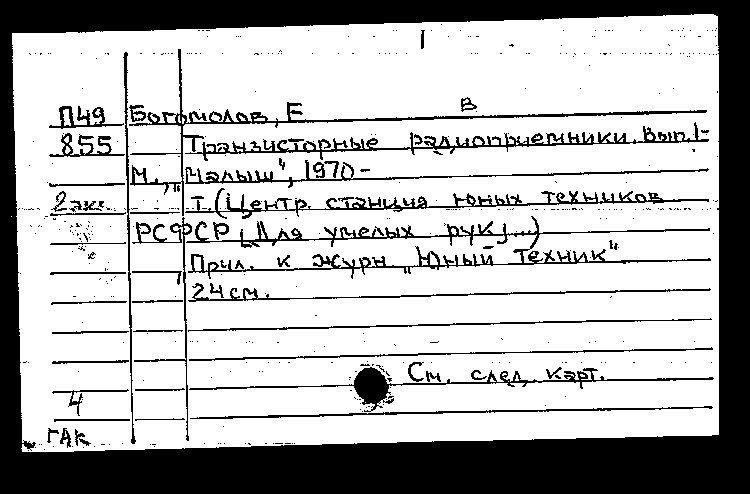 П49 Богомолов, Е В
855 Транзисторные радиоприемники. Вып. 1-
М., „Малыш“, 1970-
2 экз. т. (Центр. станция юных техников
РСФСР. [Для умелых рук]...)
Прил. к журн „Юный техник“
24 см.
См. след. карт.
4
ГАК